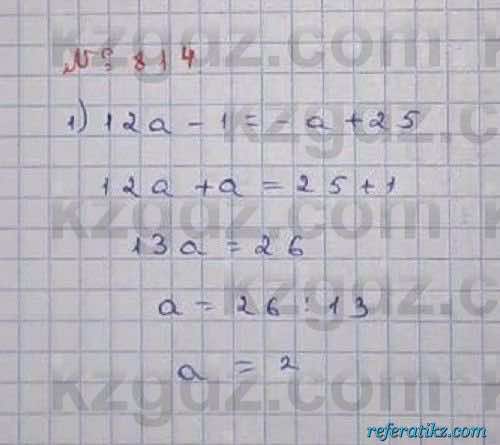 № 814
1) 12a - 1 = - a + 25
12a + a = 25 + 1
13a = 26
a = 26 : 13
a = 2
kzgdz.com
referatikz.com